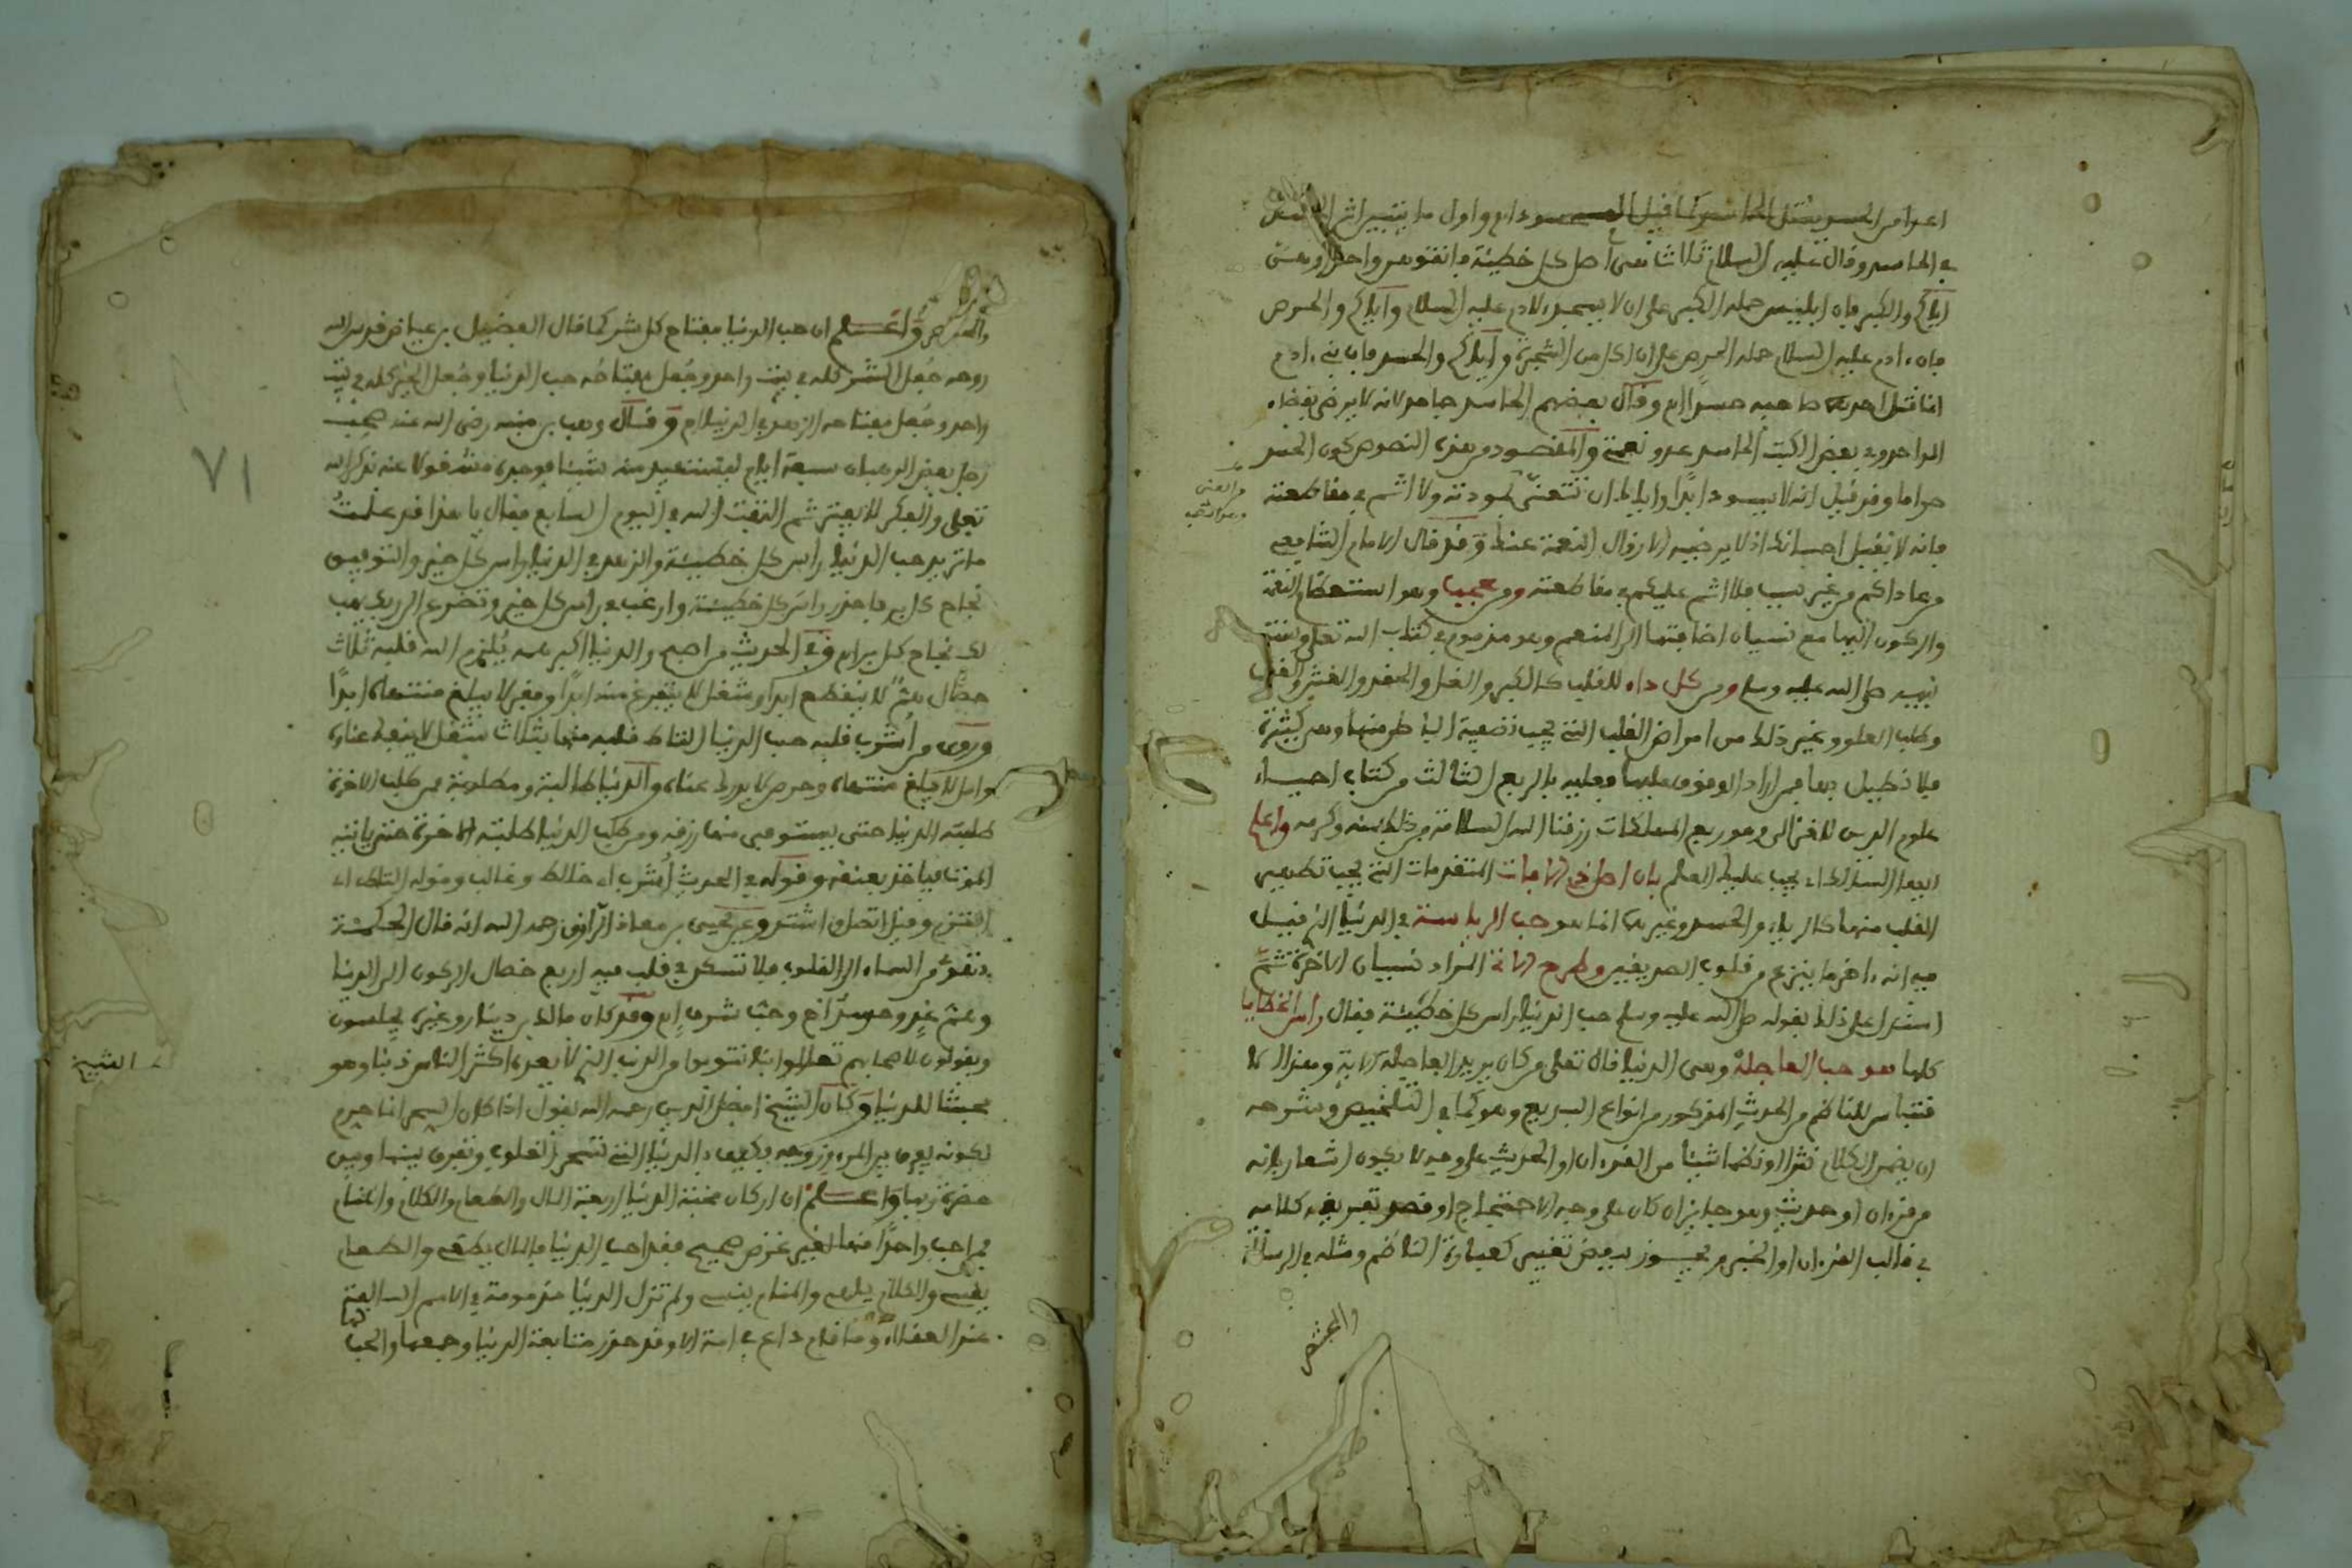 اعدا من الحسد يقتل الحاسد كما قيل الحسود دايم واول ما يتبين اثر الحسد
في الحاسد وقال عليه السلام ثلاث هن اصل كل خطيئة فاتقوهن واحذروهن
اياكم والكبر فان ابليس حمله الكبر على ان لا يسجد لادم عليه السلام واياكم والحرص
فان ءادم عليه السلام حمله الحرص على ان اكل من الشجرة واياكم والحسد فان بني ءادم
انما قتل احدهما صاحبه حسدا اه وقال بعضهم الحاسد جاحد لانه لا يرضى بقضاء
الواحد وفي بعض الكتب الحاسد عدو نعمتي والمقصود من هذه النصوص كون الحسد
حراما وقد قيل انه لا يسود ابدا واياك ان تتعنى بمودته ولا اثم في مقاطعته
فانه لا يقبل احسانك اذ لا يرضيه الا زوال النعمة عنك وقد قال الامام الشافعي
من عاداكم من غير سبب فلا اثم عليكم في مقاطعته ومن عجب وهو استعظام النعمة
والركون اليها مع نسيان اضافتها الى المنعم وهو مذموم في كتاب الله تعلى وسنة
نبيه صلى الله عليه وسلم ومن كل داء للقلب كالكبر والغل والحقد والغش والغضب
وطلب العلو وغير ذلك من امراض القلب التي يجب تصفية الباطن منها وهي كثيرة
فلا نطيل بها فمن اراد الوقوف عليها فعليه بالربع الثالث من كتاب احياء
علوم الدين للغزالي وهو ربع المهلكات رزقنا الله السلامة من ذلك بمنه وكرمه واعلم
ايها السالك انه يجب عليك العلم بان اصل ذي الافات المتقدمات التي يجب تطهير
القلب منها كالرياء والحسد وغيرها انما هو حب الرياسة في الدنيا الذي قيل
فيه انه ءاخر ما ينزع من قلوب الصديقين وطرح الاتي المراد نسيان الاخرة ثم
استدل على ذلك بقوله صلى الله عليه وسلم حب الدنيا راس كل خطيئة فقال راس الخطايا
كلها هو حب العاجلة وهي الدنيا قال تعلى من كان يريد العاجلة الاية وهذا الا
قتباس للناظم من الحديث المذكور من انواع البديع وهو كما في التلخيص وشرحه
ان يضمن الكلام نثرا او نظما شيئا من القرءان او الحديث على وجه لا يكون اشعار بانه
من قرءان او حديث وهو جايز ان كان على وجه الاحتجاج او قصد تعريف كلامه
في قالب القرءان او الخبر ويجوز بعض تغيير كعبارة الناظم ومثله في الرسالة
والحرص واعلم ان حب الدنيا مفتاح كل شر كما قال الفضيل بن عياض قدس الله
روحه جعل الشر كله في بيت واحد وجعل مفتاحه حب الدنيا وجعل الخير كله في بيت
واحد وجعل مفتاحه الزهد في الدنيا اه وقال وهب بن منبه رضى الله عنه صحب
رجل بعض الرهبان سبعة ايام ليستفيد منه شيئا فوجده مشغولا عنه بذكر الله
تعلى والفكر لا يفتر ثم التفت اليه في اليوم السابع فقال يا هذا قد علمت
ما تريد حب الدنيا راس كل خطيئة والزهد في الدنيا راس كل خير والتوفيق
نجاح كل بر فاحذر راس كل خطيئة وارغب في راس كل خير وتضرع الى ربك يهب
لك نجاح كل بر اه وفي الحديث من اصبح والدنيا اكبر همه يلزم الله قلبه ثلاث
خصال هم لا ينقطع ابدا وشغل لا يتفرغ منه ابدا وفقر لا يبلغ منتهاه ابدا
وروى من اشرب قلبه حب الدنيا التاط قلبه منها بثلاث شغل لا ينفك عناه
وامل لا يبلغ منتهاه وحرص لا يدرك غناه والدنيا طالبة ومطلوبة فمن طلب الاخرة
طلبته الدنيا حتى يستوفي منها رزقه ومن طلب الدنيا طلبته الاخرة حتى ياتيه
الموت فياخذ بعنقه وقوله في الحديث اشرب اي خالط وغالب وقوله التاط اي
التزم وقيل اتصل اشتد وعن يحيى بن معاذ الرازي رحمه الله انه قال الحكمة
تهوي من السماء الى القلوب فلا تسكن في قلب فيه اربع خصال الركون الى الدنيا
وهم غد وحسد اخ وحب شرف اه وقد كان مالك بن دينار وغيره يجلسون
ويقولون لاصحابهم تعالوا بنا نتوب من الذنب الذي لا يعده اكثر الناس ذنبا وهو
محبتنا للدنيا وكان الشيخ افضل الدين رحمه الله يقول اذا كان السحر انما حرم
لكونه يفرق بين المرء وزوجه فكيف بالدنيا التي تسحر القلوب وتفرق بينها وبين
حضرة ربها واعلم ان اركان محبة الدنيا اربعة المال والطعام والكلام والمنام
فمن احب واحدا منها لغير غرض صحيح فقد احب الدنيا فالمال يطغى والطعام
يقسى والكلام يلهى والمنام ينسى ولم تزل الدنيا مذمومة في الامم السالفة
عند العقلاء وما قام داع في امة الا وقد حذر متابعة الدنيا وجمعها والحب لها
الشيخ
٧١